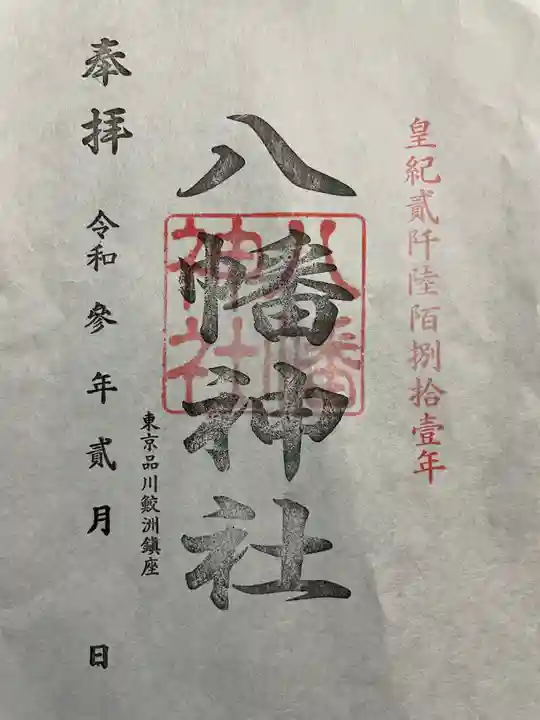 皇紀貳阡陸陌捌拾壹年
八幡神社
八幡
神社
東京品川鮫洲鎮座
奉拝
令和参年貳月 日